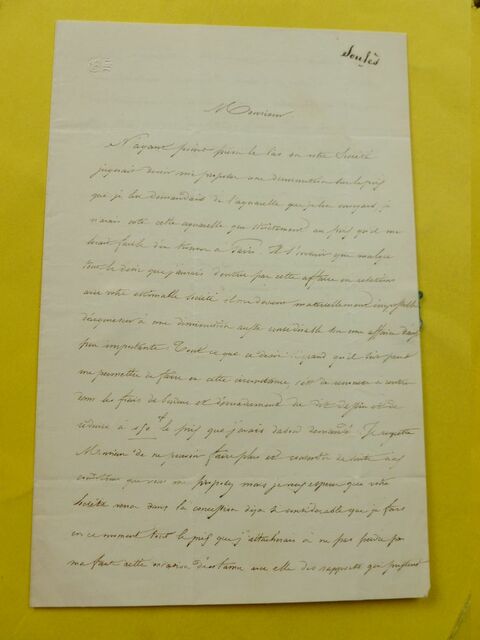 Soulès
Monsieur
N'ayant point prévu le cas où votre Société
jugerait devoir me proposer une diminution sur le prix
que je lui demandais de l'aquarelle que je lui envoyais, je
n'avais coté cette aquarelle que strictement au prix qu'il me
serait facile d'en trouver à Paris. Il s'ensuit que malgré
tout le désir que j'aurais d'entrer par cette affaire en relations
avec votre estimable société il me devient matériellement impossible
d'acquiescer à une diminution aussi considérable sur une affaire
peu importante. Tout ce que ce désir si grand qu'il soit peut
me permettre de faire en cette circonstance, c'est de
les frais de bordure et d'encadrement du dit dessin et de
réduire à 150 f le prix que j'avais d'abord demandé. Je regrette
Monsieur de ne pouvoir faire plus et
conditions que vous me proposez mais je veux espérer que votre
Société verra dans la concession déjà si considérable que je fais
en ce moment tout le prix que j'attacherais à ne pas perdre par
ma faute cette occasion d'entamer avec elle des rapports qui